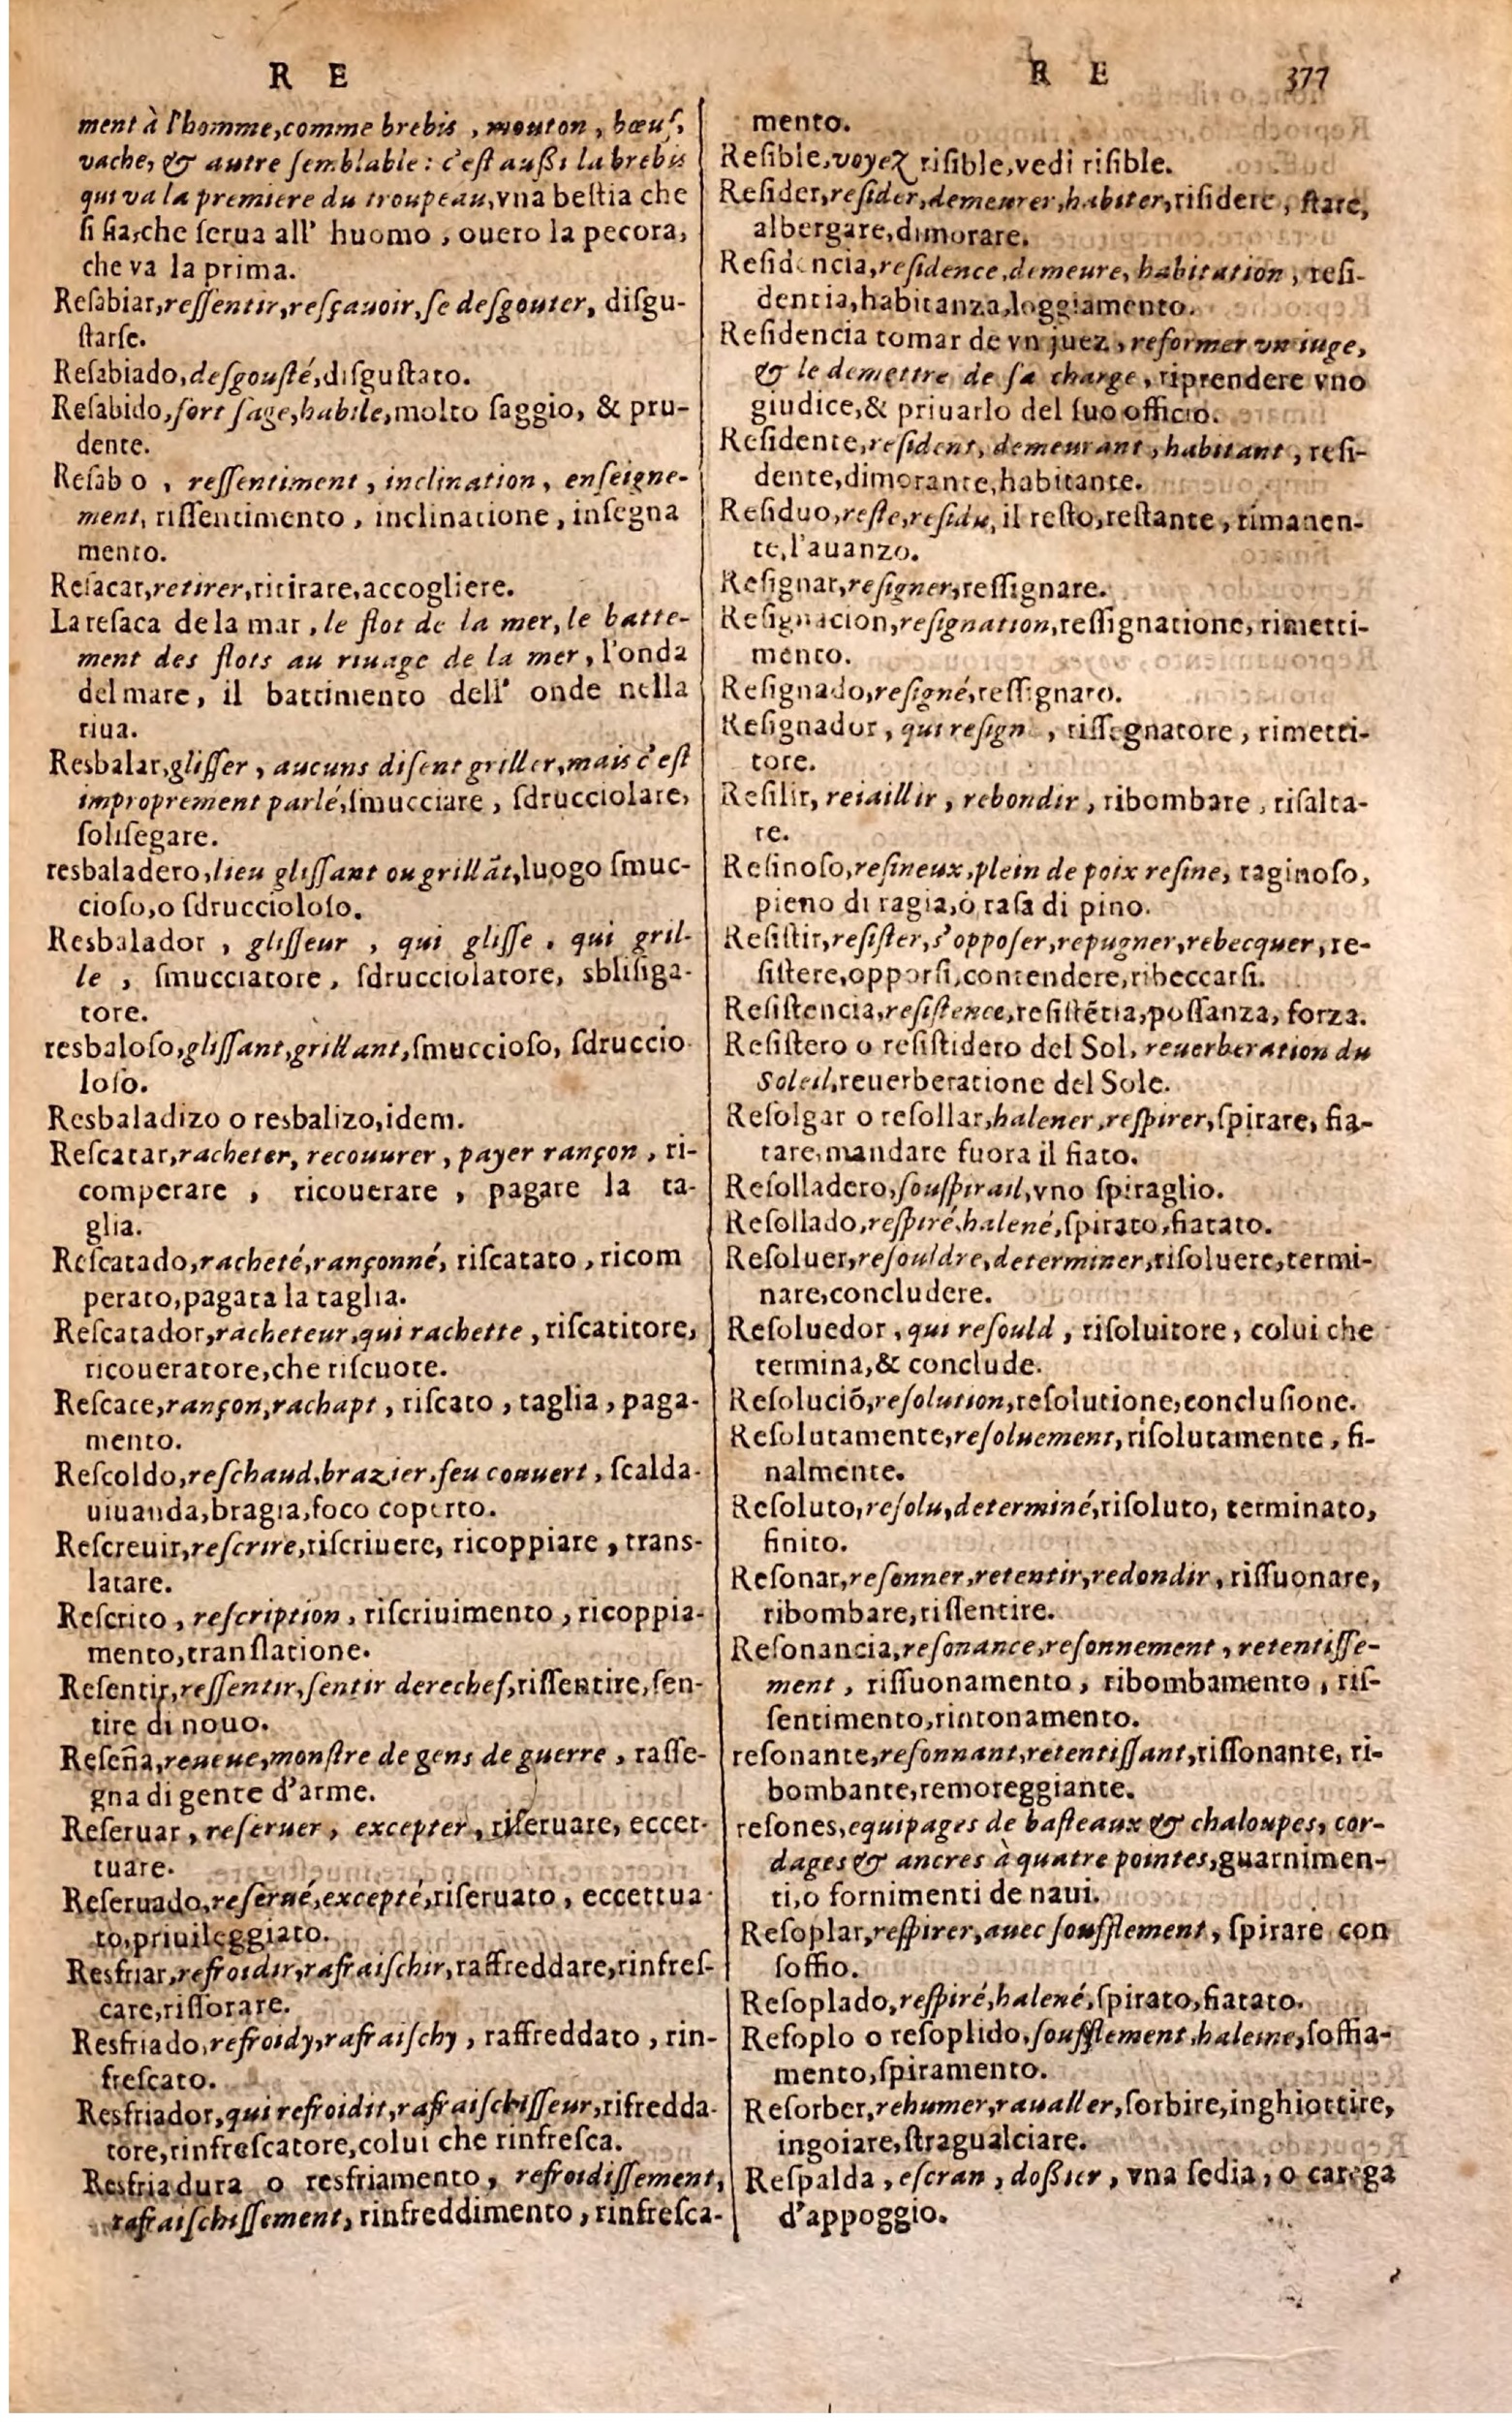 R E
ment à l'homme, comme brebis, mouton, bœuf,
vache, & autre ſemblable: c'eſt außi la brebis
qui va la premiere du troupeau, vna beſtia che
ſi ſia, che ſerua all' huomo, ouero la pecora,
che va la prima.
Reſabiar, reſſentir, reſçauoir, ſe deſgouter, diſgu-
ſtarſe.
Reſabiado, deſgouſté, diſguſtato.
Reſabido, fort ſage, habile, molto ſaggio, & pru-
dente.
Reſab o, reſſentiment, inclination, enſeigne-
ment, riſſentimento, inclinatione, inſegna
mento.
Reſacar, retirer, ritirare, accogliere.
La reſaca de la mar, le flot de la mer, le batte-
ment des flots au riuage de la mer, l'onda
del mare, il battimento dell' onde nella
riua.
Resbalar, gliſſer, aucuns diſent griller, mais c'eſt
improprement parlé, ſmucciare, ſdrucciolare,
ſolisegare.
resbaladero, lieu gliſſant ou grillãt, luogo ſmuc-
cioſo, o ſdruccioloſo.
Resbalador, gliſſeur, qui gliſſe, qui gril-
le, ſmucciatore, ſdrucciolatore, sbliſiga-
tore.
resbaloſo, gliſſant, grillant, ſmuccioſo, ſdruccio-
loſo.
Resbaladizo o resbalizo, idem.
Reſcatar, racheter, recouurer, payer rançon, ri-
comperare, ricouerare, pagare la ta-
glia.
Reſcatado, racheté, rançonné, riſcatato, ricom
perato, pagata la taglia.
Reſcatador, racheteur, qui rachette, riſcatitore,
ricoueratore, che riſcuote.
Reſcate, rançon, rachapt, riſcato, taglia, paga-
mento.
Reſcoldo, reſchaud, brazier, feu couuert, ſcalda-
uiuanda, bragia, foco coperto.
Reſcreuir, reſcrire, riſcriuere, ricoppiare, trans-
latare.
Reſcrito, reſcription, riſcriuimento, ricoppia-
mento, tranſlatione.
Reſentir, reſſentir, ſentir derechef, riſſentire, ſen-
tire di nouo.
Reſeña, reueue, monſtre de gens de guerre, raſſe-
gna di gente d'arme.
Reſeruar, reſeruer, excepter, riſeruare, eccet-
tuare.
Reſeruado, reſerué, excepté, riſeruato, eccettua-
to, priuileggiato.
Resfriar, refroidir, rafraiſchir, raffreddare, rinfreſ-
care, riſſorare.
Resfriado, refroidy, rafraiſchy, raffreddato, rin-
freſcato.
Resfriador, qui refroidit, rafraiſchiſſeur, rifredda-
tore, rinfreſcatore, colui che rinfreſca.
Resfriadura o resfriamento, refroidiſſement,
rafraiſchiſſement, rinfreddimento, rinfreſca-
R E 377
mento.
Reſible, voyez riſible, vedi riſible.
Reſider, reſider, demeurer, habiter, riſidere, ſtare,
albergare, dimorare.
Reſidencia, reſidence, demeure, habitation, reſi-
dentia, habitanza, loggiamento.
Reſidencia tomar de vn juez, reformer vn iuge,
& le demettre de ſa charge, riprendere vno
giudice, & priuarlo del ſuo officio.
Reſidente, reſident, demeurant, habitant, reſi-
dente, dimorante, habitante.
Reſiduo, reſte, reſidu, il reſto, reſtante, rimanen-
te, l'auanzo.
Reſignar, reſigner, reſſignare.
Reſignacion, reſignation, reſſignatione, rimetti-
mento.
Reſignado, reſigné, reſſignato.
Reſignador, qui reſign, riſſegnatore, rimetti-
tore.
Reſilir, reiaillir, rebondir, ribombare, riſalta-
re.
Reſinoſo, reſineux, plein de poix reſine, raginoſo,
pieno di ragia, o raſa di pino.
Reſiſtir, reſiſter, s'oppoſer, repugner, rebecquer, re-
ſiſtere, opporſi, contendere, ribeccarſi.
Reſiſtencia, reſiſtence, reſiſtẽtia, poſſanza, forza.
Reſiſtero o reſiſtidero del Sol, reuerberation du
Soleil, reuerberatione del Sole.
Reſolgar o reſollar, halener, reſpirer, ſpirare, fia-
tare, mandare fuora il fiato.
Reſolladero, ſouſpirail, vno ſpiraglio.
Reſollado, reſpiré, halené, ſpirato, fiatato.
Reſoluer, reſouldre, determiner, riſoluere, termi-
nare, concludere.
Reſoluedor, qui reſould, riſoluitore, colui che
termina, & conclude.
Reſoluciõ, reſolution, reſolutione, concluſione.
Reſolutamente, reſoluement, riſolutamente, fi-
nalmente.
Reſoluto, reſolu, determiné, riſoluto, terminato,
finito.
Reſonar, reſonner, retentir, redondir, riſſuonare,
ribombare, riſſentire.
Reſonancia, reſonance, reſonnement, retentiſſe-
ment, riſſuonamento, ribombamento, riſ-
ſentimento, rintonamento.
reſonante, reſonnant, retentiſſant, riſſonante, ri-
bombante, remoreggiante.
reſones, equipages de baſteaux & chaloupes, cor-
dages & ancres à quatre pointes, guarnimen-
ti, o fornimenti de naui.
Reſoplar, reſpirer, auec ſoufflement, ſpirare con
ſoffio.
Reſoplado, reſpiré, halené, ſpirato, fiatato.
Reſoplo o reſoplido, ſoufflement, haleine, ſoffia-
mento, ſpiramento.
Reſorber, rehumer, raualler, ſorbire, inghiottire,
ingoiare, ſtragualciare.
Reſpalda, eſcran, doßier, vna ſedia, o carega
d'appoggio.